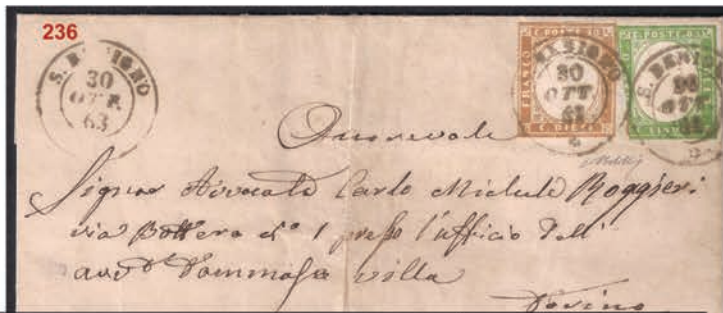 236
S. BENIGNO
30
OTT.
63
S. BENIGNO
30
OTT.
63
FRANCO
C. POSTE 10
C. DIECI
S. BENIGNO
30
C. POSTE 05
Onorevole
Signor Avvocato Carlo Michele Roggieri
via Bottero n° 1 presso l'ufficio dell'
avv.to Tommaso Villa
Torino